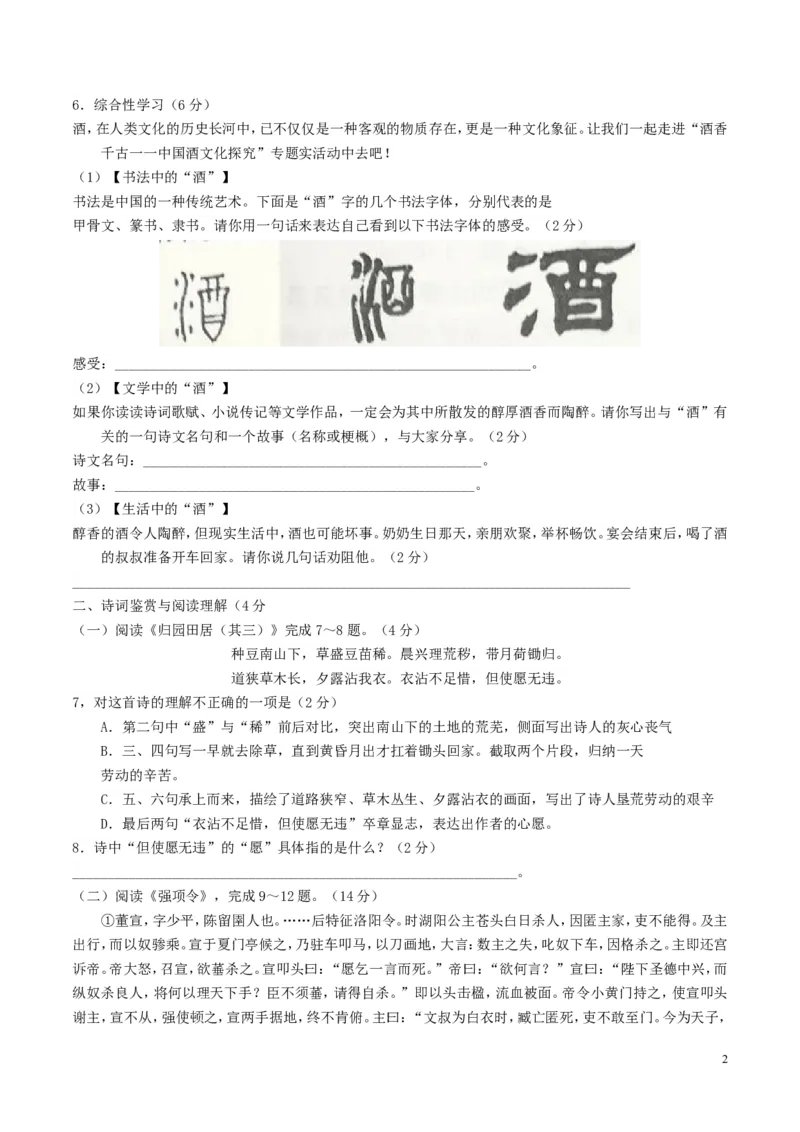 6．综合性学习（6 分）
酒，在人类文化的历史长河中，已不仅仅是一种客观的物质存在，更是一种文化象征。让我们一起走进“酒香
千古一一中国酒文化探究”专题实活动中去吧！
（1）【书法中的“酒”】
书法是中国的一种传统艺术。下面是“酒”字的几个书法字体，分别代表的是
甲骨文、篆书、隶书。请你用一句话来表达自己看到以下书法字体的感受。（2 分）
酒 酒 酒
感受：____________________________________________________________。
（2）【文学中的“酒”】
如果你读读诗词歌赋、小说传记等文学作品，一定会为其中所散发的醇厚酒香而陶醉。请你写出与“酒”有
关的一句诗文名句和一个故事（名称或梗概），与大家分享。（2 分）
诗文名句：_________________________________________________。
故事：____________________________________________________。
（3）【生活中的“酒”】
醇香的酒令人陶醉，但现实生活中，酒也可能坏事。奶奶生日那天，亲朋欢聚，举杯畅饮。宴会结束后，喝了酒
的叔叔准备开车回家。请你说几句话劝阻他。（2 分）
________________________________________________________________________________
二、诗词鉴赏与阅读理解（4 分
（一）阅读《归园田居（其三）》完成 7～8 题。（4 分）
种豆南山下，草盛豆苗稀。晨兴理荒秽，带月荷锄归。
道狭草木长，夕露沾我衣。衣沾不足惜，但使愿无违。
7，对这首诗的理解不正确的一项是（2 分）
A．第二句中“盛”与“稀”前后对比，突出南山下的土地的荒芜，侧面写出诗人的灰心丧气
B．三、四句写一早就去除草，直到黄昏月出才扛着锄头回家。截取两个片段，归纳一天
劳动的辛苦。
C．五、六句承上而来，描绘了道路狭窄、草木丛生、夕露沾衣的画面，写出了诗人垦荒劳动的艰辛
D．最后两句“衣沾不足惜，但使愿无违”卒章显志，表达出作者的心愿。
8．诗中“但使愿无违”的“愿”具体指的是什么？（2 分）
________________________________________________________________。
（二）阅读《强项令》，完成 9～12 题。（14 分）
①董宣，字少平，陈留圉人也。……后特征洛阳令。时湖阳公主苍头白日杀人，因匿主家，吏不能得。及主
出行，而以奴骖乘。宣于夏门亭候之，乃驻车叩马，以刀画地，大言：数主之失，叱奴下车，因格杀之。主即还宫
诉帝。帝大怒，召宣，欲菙杀之。宣叩头曰：“愿乞一言而死。”帝曰：“欲何言？”宣曰：“陛下圣德中兴，而
纵奴杀良人，将何以理天下手？臣不须菙，请得自杀。”即以头击楹，流血被面。帝令小黄门持之，使宣叩头
谢主，宣不从，强使顿之，宣两手据地，终不肯俯。主曰：“文叔为白衣时，臧亡匿死，吏不敢至门。今为天子，
2